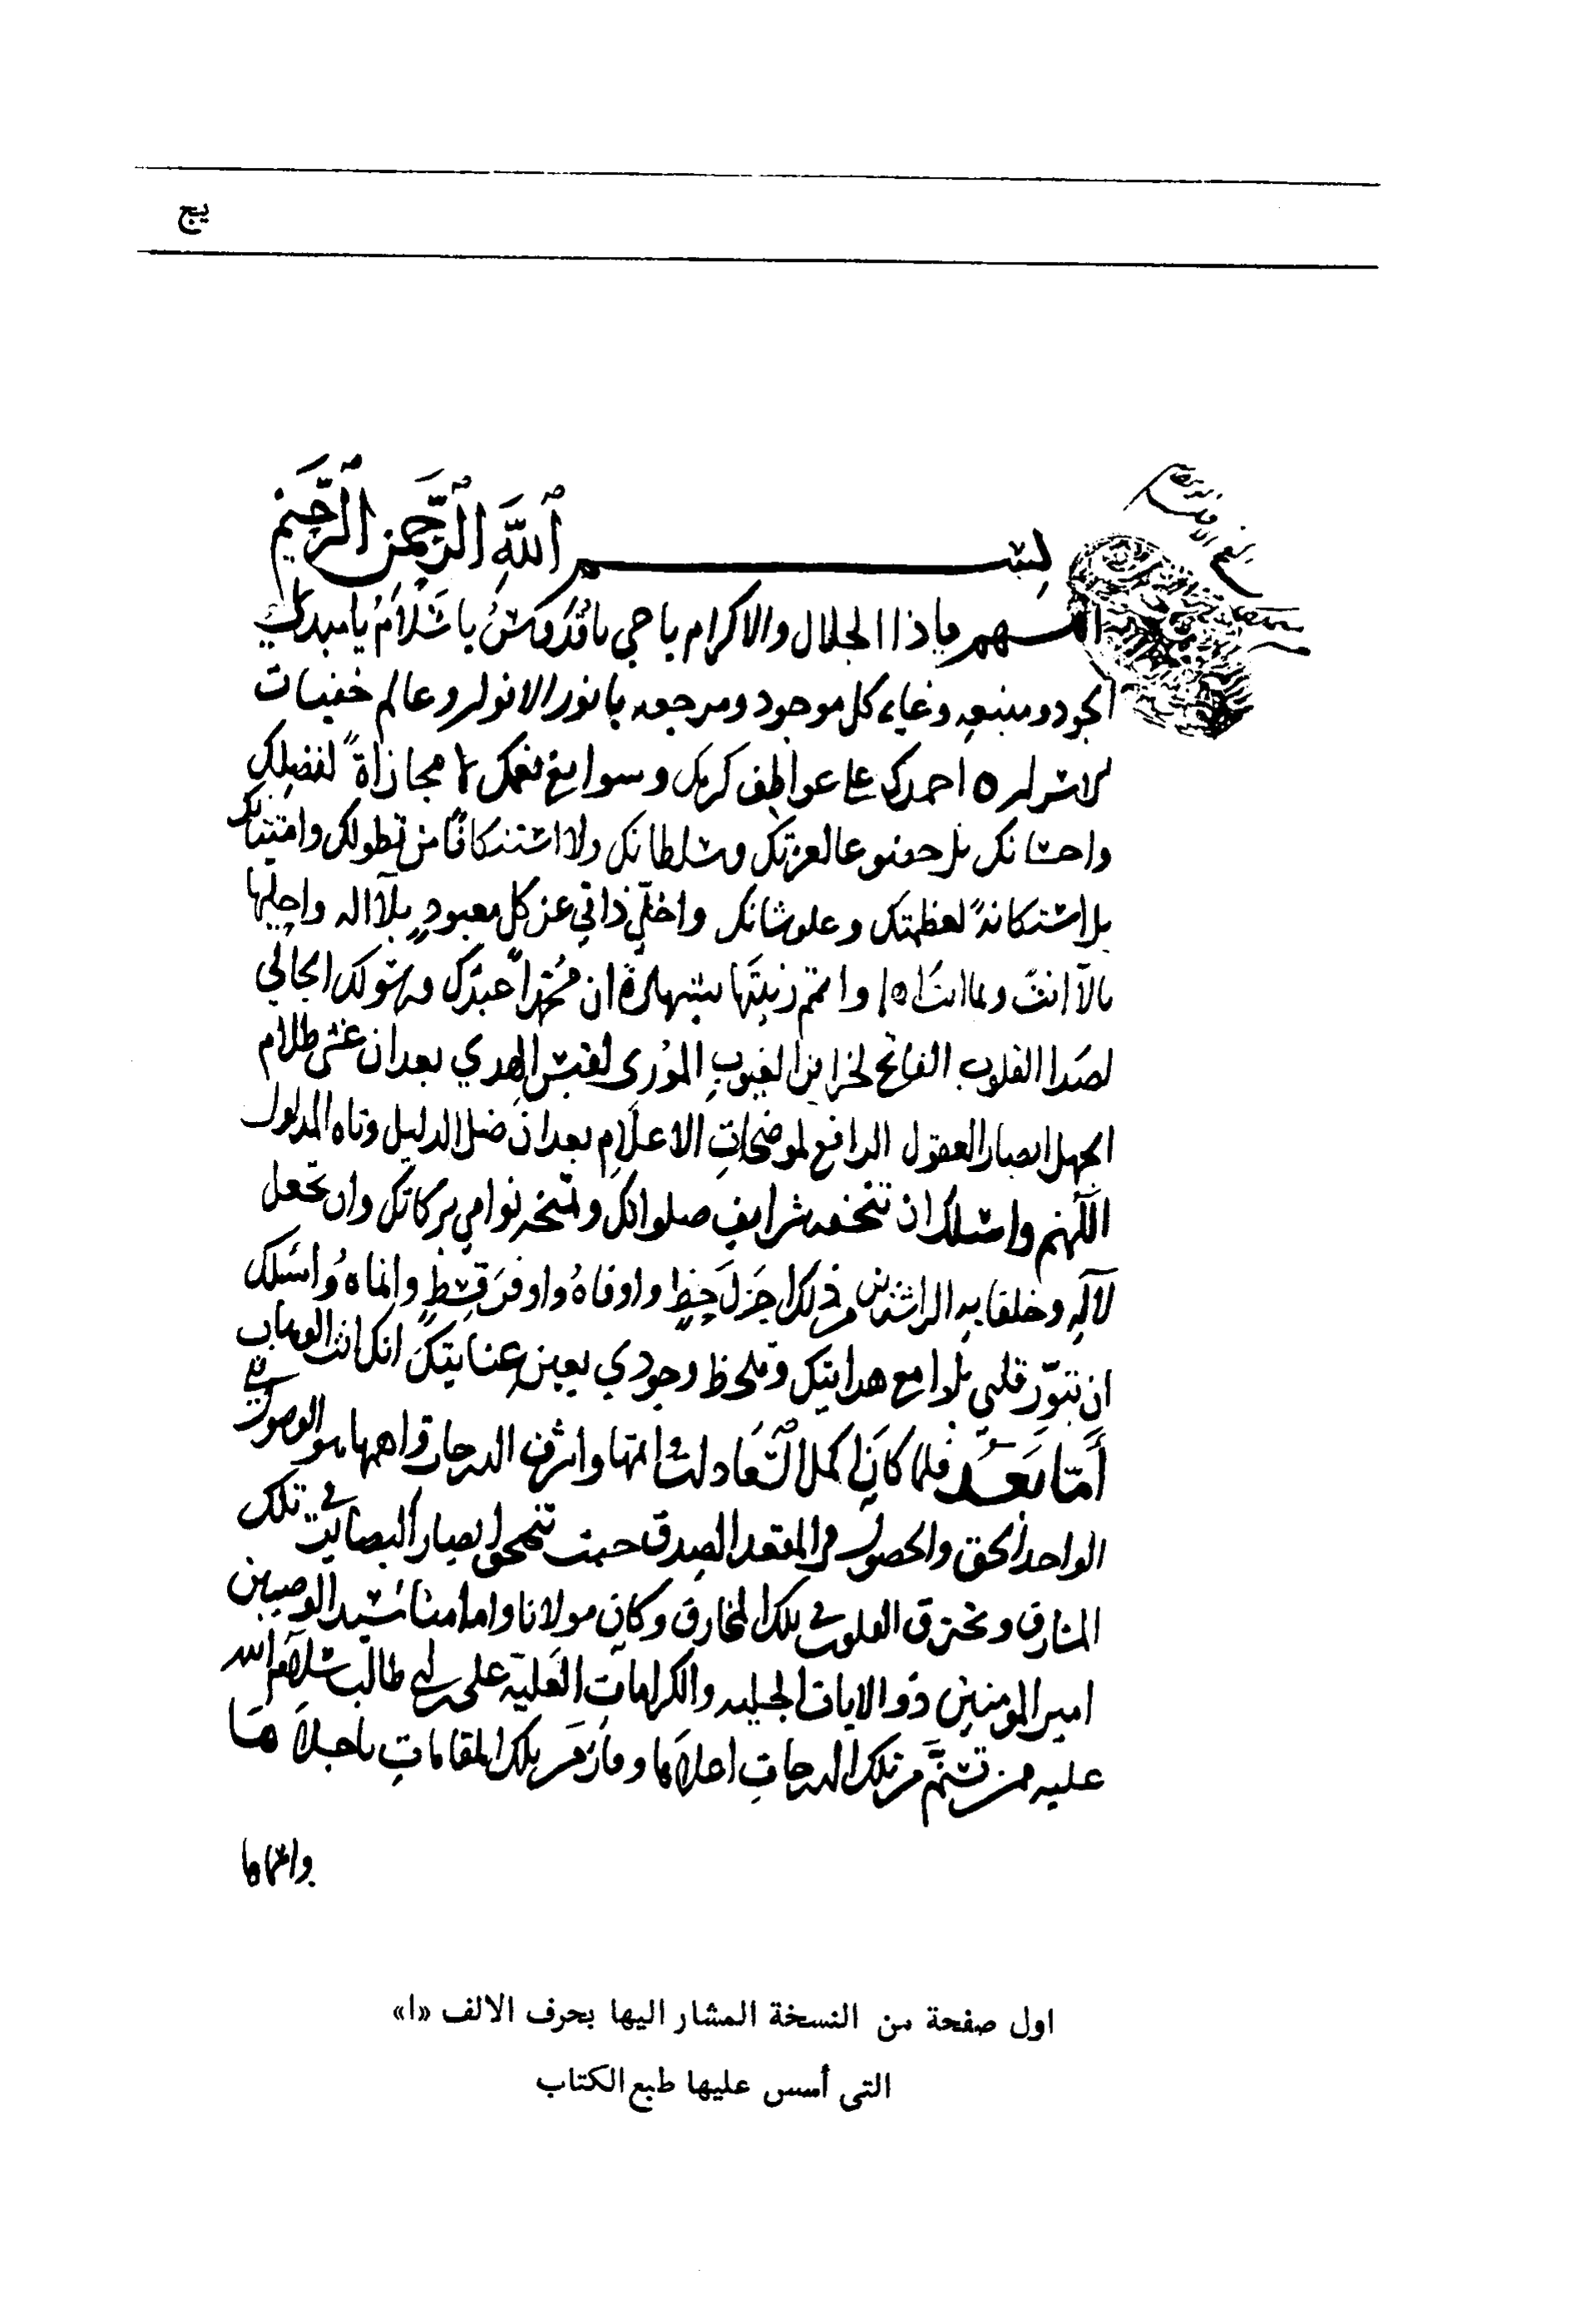 يج
بسم الله الرحمن الرحيم
اللهم ياذا الجلال والاكرام ياحي ياقدوس ياسلام يامبدئ
الجود ومنبعه وغاية كل موجود ومرجعه يانور الانوار وعالم خفيات
الاسرار احمدك على عواطف كرمك وسوابغ نعمك لا مجازاة لفضلك
واحسانك بل خضوعا لعزتك وسلطانك ولا استنكافا من تطولك وامتنانك
بل استكانة لعظمتك وعلو شانك واخلي ذاتي عن كل معبود بلا اله واحليها
بالا انت وما انت الا وأتمم زينتها بشهادة ان محمدا عبدك ورسولك الجالي
لصدا القلوب الفاتح لخزاين الغيوب الموري لقبس الهدي بعد ان غشى ظلام
الجهل ابصار العقول الرافع لموضحات الاعلام بعد ان ضل الدليل وتاه المدلول
اللهم واسئلك ان تتحفه شرايف صلواتك وتمنحه نوامي بركاتك وان تجعل
لآله وخلفايه الراشدين من ذلك اجزل حظ واوفاه واوفر قسط وانماه واسئلك
ان تنور قلبي بلوامع هدايتك وتلحظ وجودي بعين عنايتك انك انت الوهاب
أما بعد فلما كان اكمل السعادات واتمها واشرف الدرجات واهمها هو الوصول الى
الواحد الحق والحصول في المقعد الصدق حيث تنمحق ابصار البصاير في تلك
المشارق وتحترق القلوب في تلك المخارق وكان مولانا وامامنا سيد الوصيين
امير المومنين ذو الايات الجليه والكرامات العلية علي بن ابي طالب سلام الله
عليه ممن تسنم من تلك الدرجات اعلاها وفاز من تلك المقامات باجلاها
واتمها
اول صفحة من النسخة المشار اليها بحرف الالف «ا»
التى أسس عليها طبع الكتاب